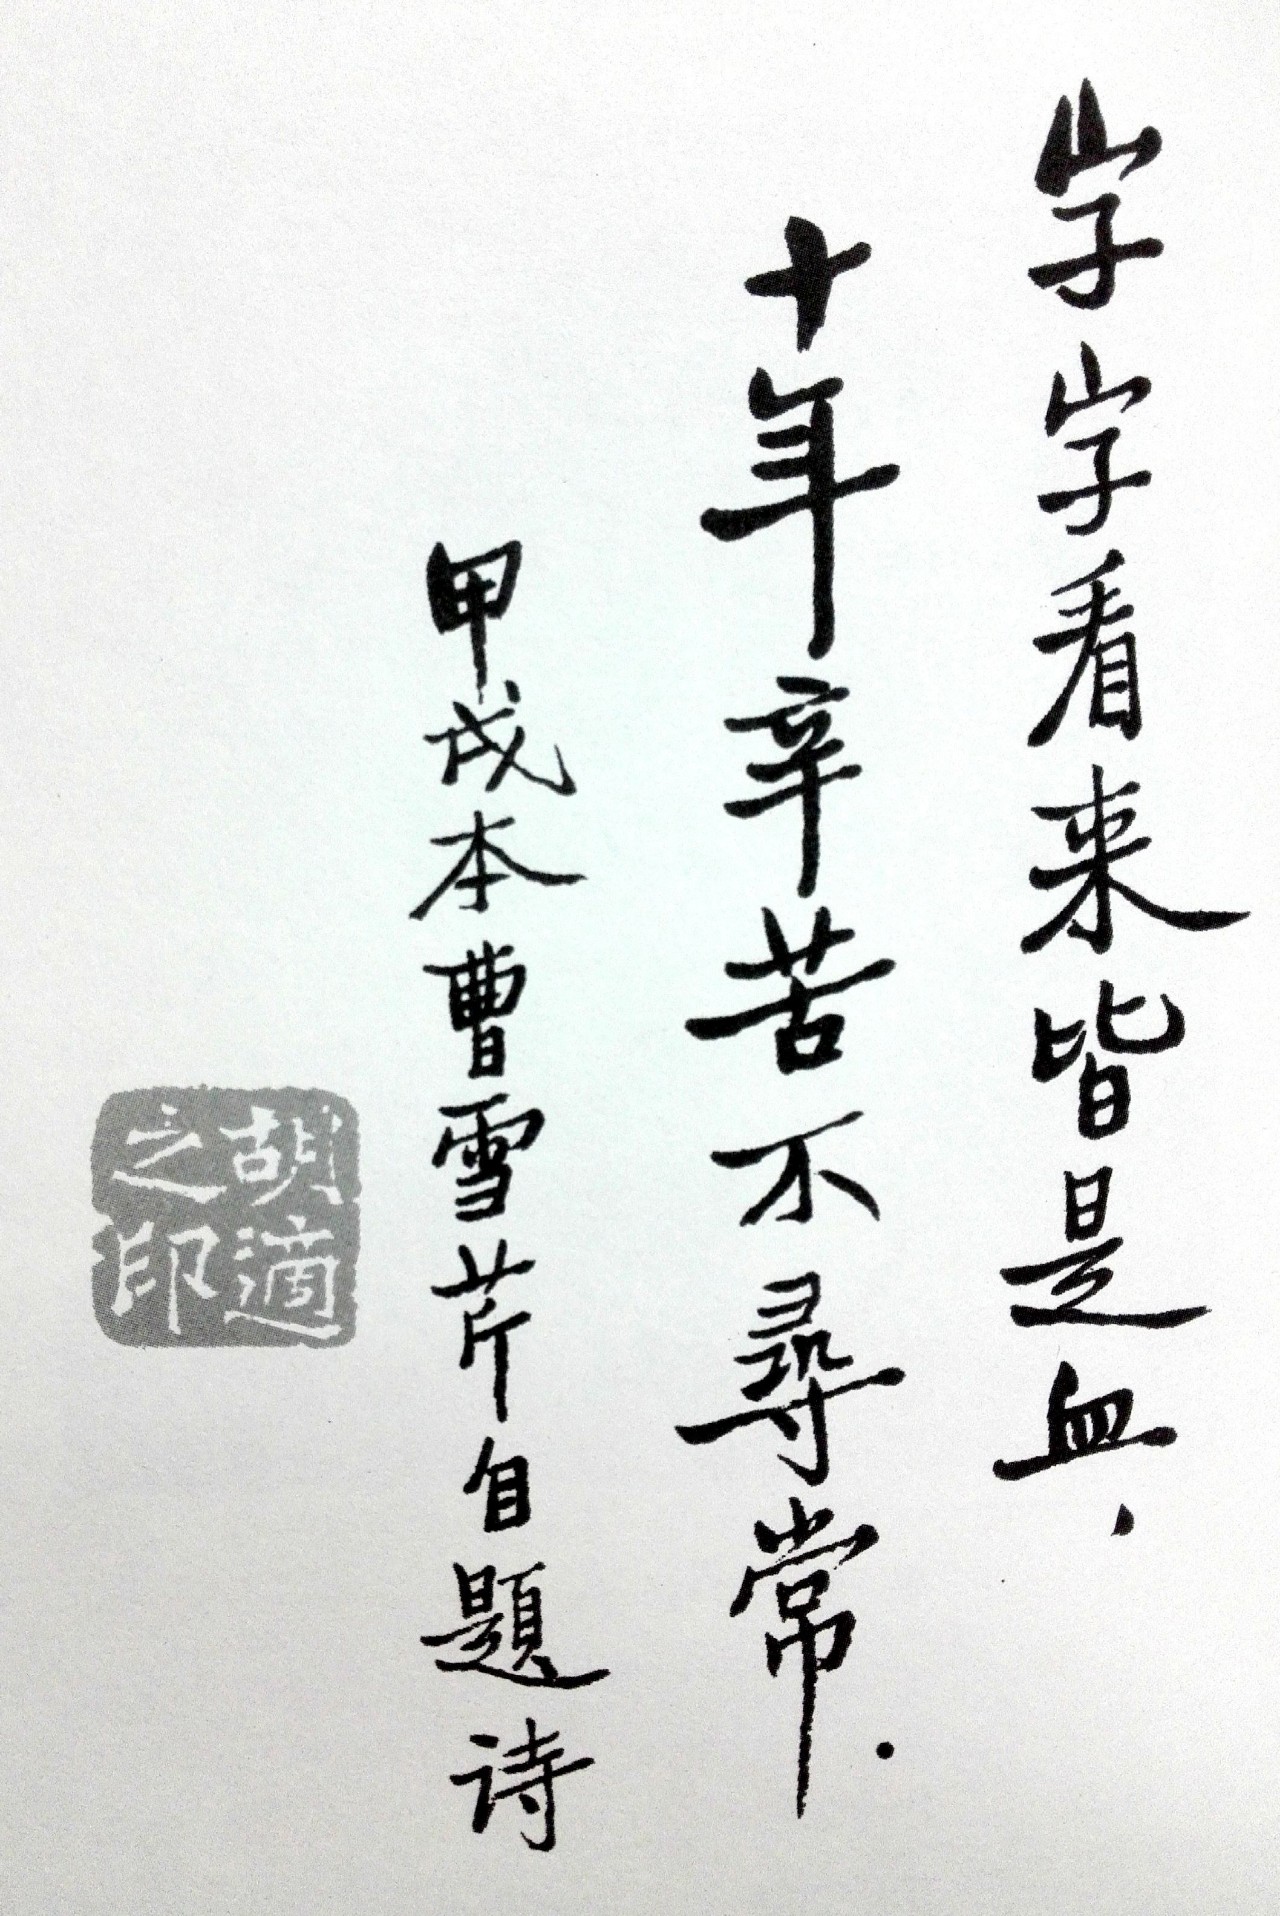 字字看来皆是血、
十年辛苦不尋常．
甲戌本曹雪芹自題诗
胡適
之印